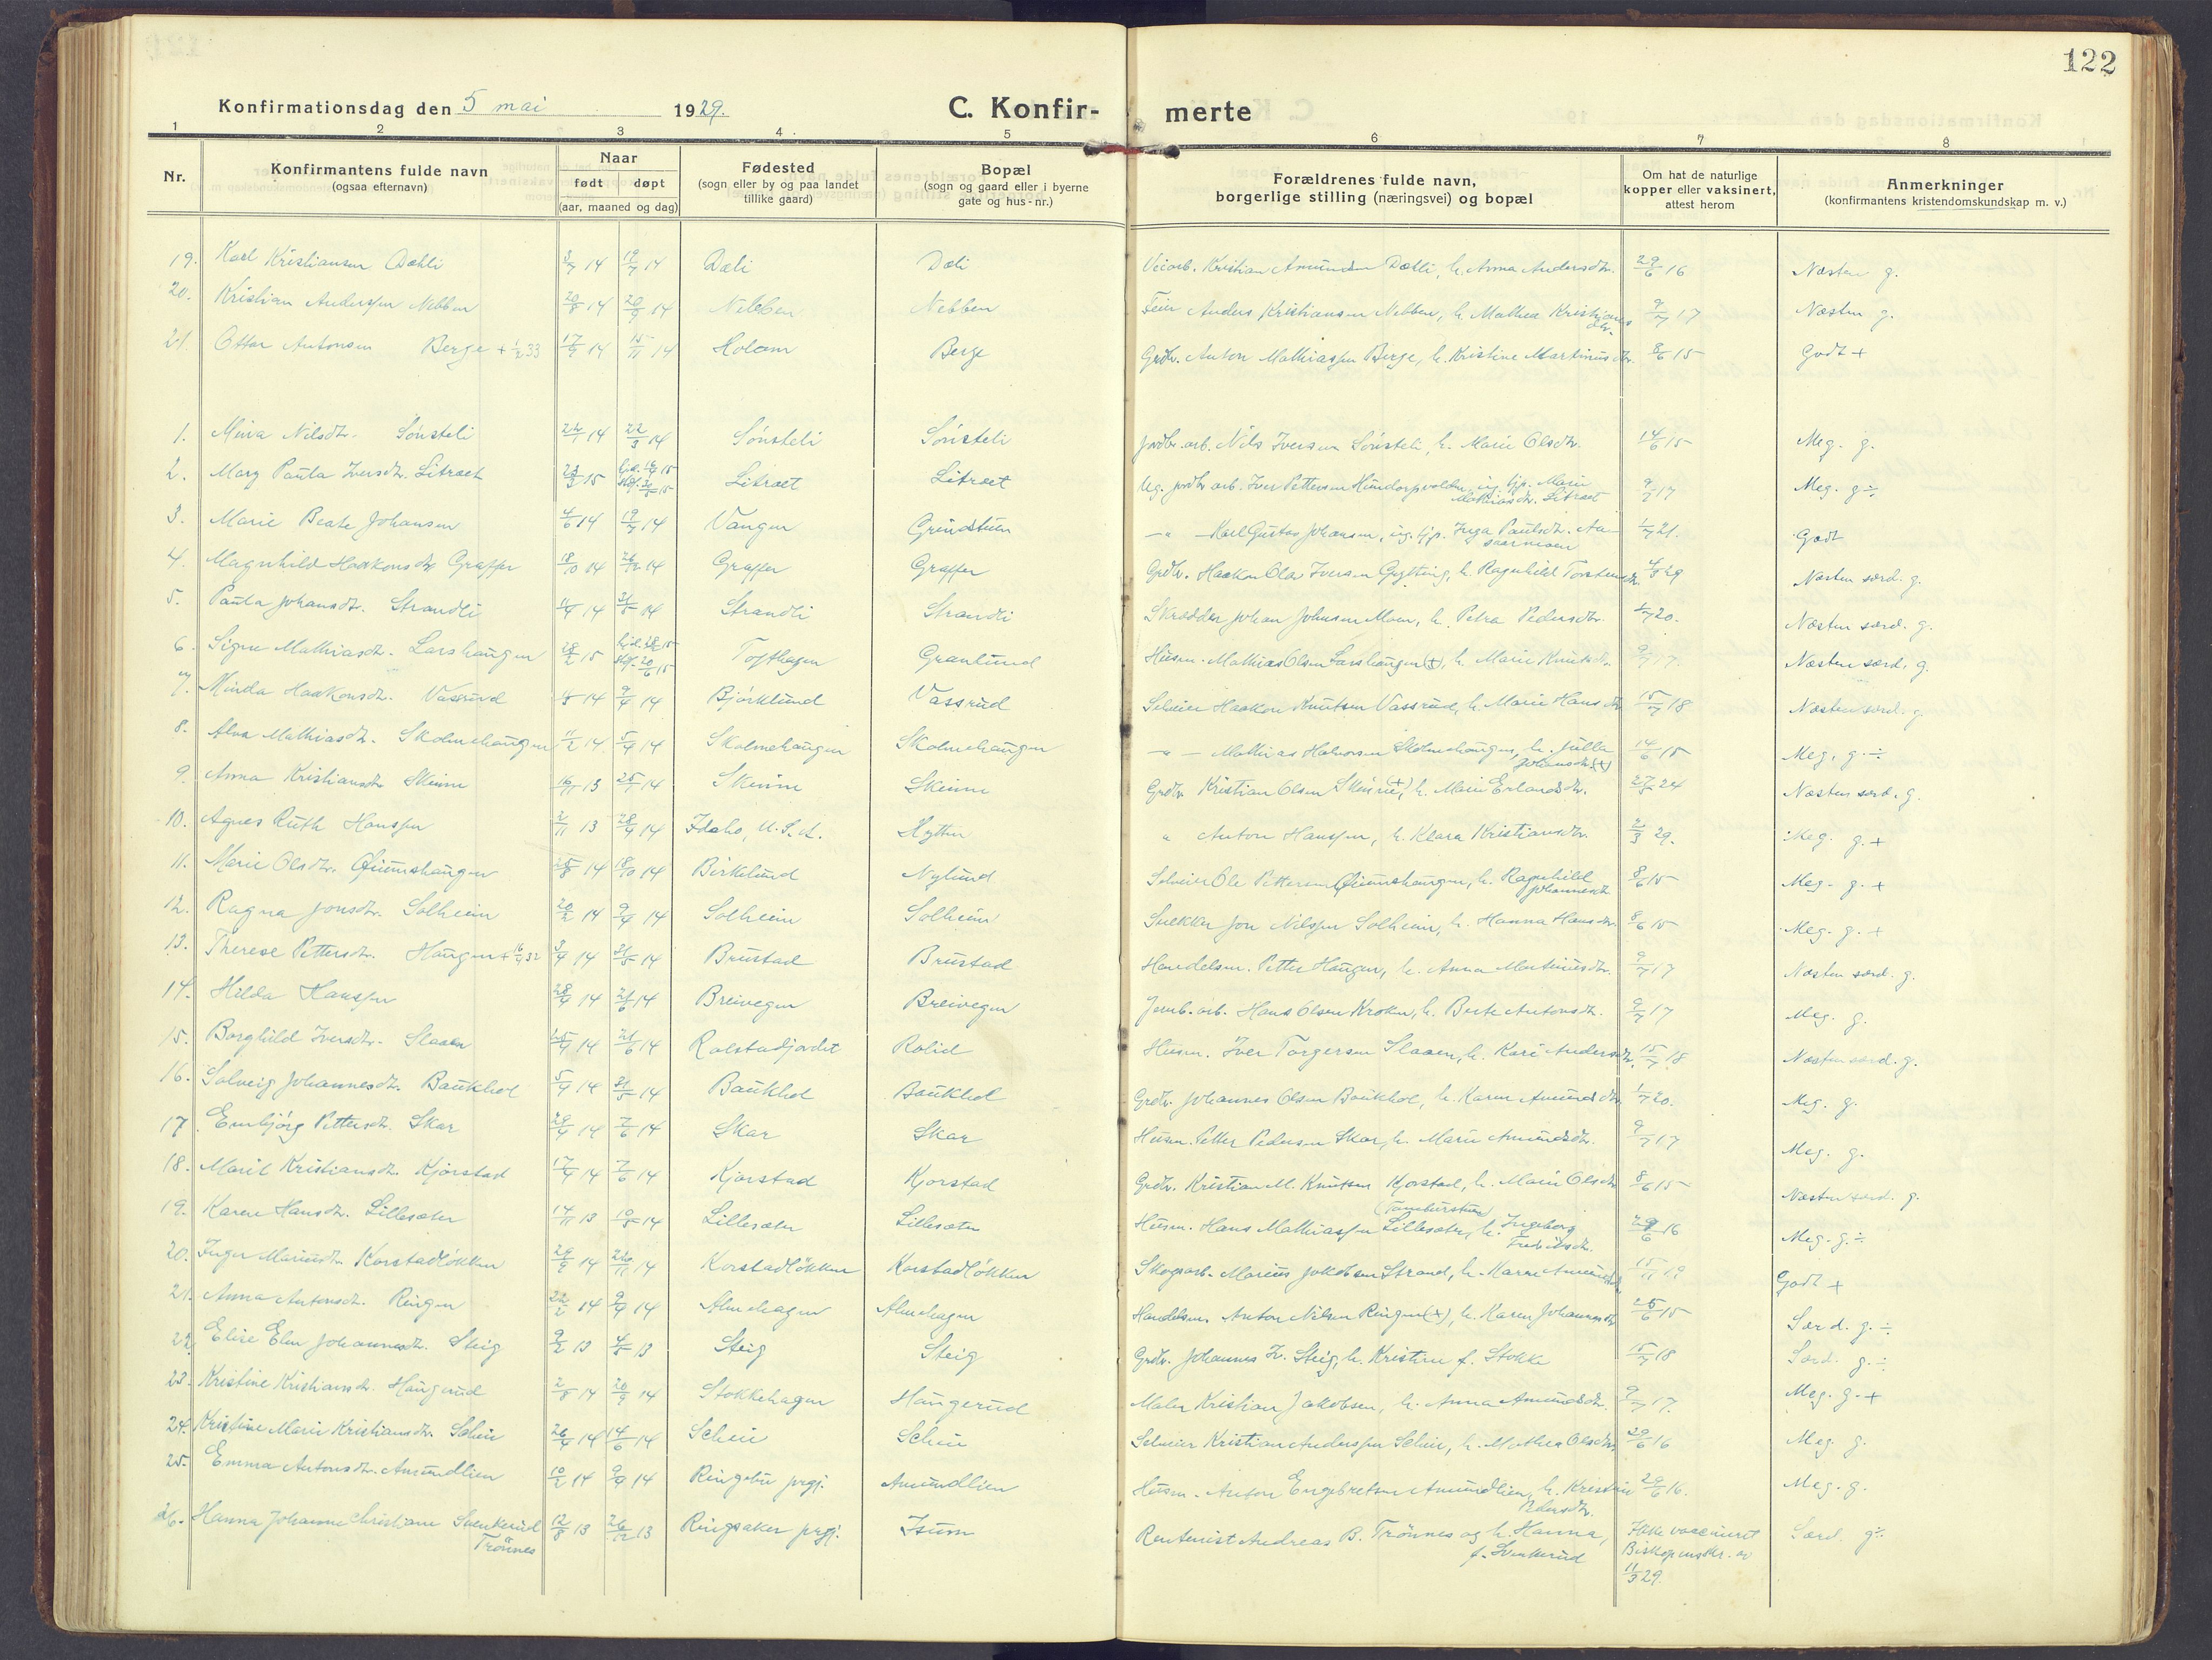 122
Konfirmationsdag den 5 mai 1929. C. Konfir- merte
1 2 3 4 5 6 7 8
Nr. Konfirmantens fulde navn (ogsaa efternavn) Naar født døpt (aar, maaned og dag) Fødested (sogn eller by og paa landet tillike gaard) Bopæl (sogn og gaard eller i byerne gate og hus-nr.) Forældrenes fulde navn, borgerlige stilling (næringsvei) og bopæl Om hat de naturlige kopper eller vaksinert, attest herom Anmerkninger (konfirmantens kristendomskundskap m. v.)
19. Karl Kristiansen Dæhli 3/7 14 19/7 14 Dæli Dæli Veiarb. Kristian Amundsen Dæhli, h. Anna Andersdtr. 29/6 16 Næsten g.
20. Kristian Anderssen Nebben 20/8 14 20/9 14 Nebben Nebben Feier Anders Kristiansen Nebben, h. Mathea Kristians dtr. 9/7 17 Næsten g.
21. Ottar Antonsen Berge + 1/2 33 17/9 14 15/11 14 Holom Berge Grdbr. Anton Mathiassen Berge, h. Kristine Martinusdtr. 8/6 15 Godt +
1. Mina Nilsdtr. Sönsteli 22/1 14 22/3 14 Sönsteli Sönsteli Jordbr. arb. Nils Iversen Sönsteli, h. Marie Olsdtr. 14/6 15 Meg. g.
2. Mary Paula Iversdtr. Litræet 15 Litræet Litræet Ug. jordbr. arb. Iver Pettersen Hundorpvolden, ug. tjp. Marie Mathiasdtr. Litræet 9/7 17 Meg. g ÷
3. Marie Beate Johansen 4/6 14 19/7 14 Vangen Grindstuen –"– Karl Gustav Johansen, ug. tjp. Inga Paulsdtr. 1/7 21. Godt
4. Magnhild Haakonsdtr. Graffer 18/10 14 26/12 14 Graffer Graffer Grdbr. Haakon Olav Iversen Gytting, h. Ragnhild Torstensdtr. 4/3 29 Næsten særd. g.
5. Paula Johansdtr. Strandli 14 31/5 14 Strandli Strandli Skrædder Johan Johnsen Moen, h. Petra Pedersdtr. 1/7 20. Næsten særd. g.
6. Signe Mathiasdtr. Larshaugen 28/2 15 Tofthagen Granlund Husm. Mathias Olsen Larshaugen (+), h. Marie Knutsdtr. 9/7 17. Næsten særd. g.
7. Minda Haakonsdtr. Vassrud 14 9/4 14 Bjørklund Vassrud Selveier Haakon Knutsen Vassrud, h. Marie Hansdtr. 15/7 18 Næsten særd. g.
8. Alva Mathiasdtr. Skolmehaugen 11/2 14. 5/4 14 Skolmehaugen Skolmehaugen –"– Mathias Halvorsen Skolmehaugen, h. Julla Johansdtr. (+) 14/6 15 Meg. g. ÷
9. Anna Kristiansdtr. Skeine 16/11 13 25/1 14 Skeine Skeine Grdbr. Kristian Olsen Skeine (+), h. Marie Erlandsdtr. 24 Næsten særd. g.
10. Agnes Ruth Hanssen 2/11 13 28/4 14 Idaho, U.S.A. Hytten " Anton Hanssen, h. Klara Kristiansdtr. 2/3 29. Meg. g. +
11. Marie Olsdtr. 25/8 14 18/10 14 Birkelund Nylund Selveier Ole Pettersen h. Ragnhild Johannesdtr. 8/6 15 Meg. g. +
12. Ragna Jonsdtr. Solheim 20/2 14 9/4 14 Solheim Solheim Snekker Jon Nilssen Solheim, h. Hanna Hansdtr. 8/6 15 Meg. g. +
13. Therese Pettersdtr. Haugen + 16/4 32 3/4 14 31/5 14 Brustad Brustad Handelsm. Petter Haugen, h. Anna Martinusdtr. 9/7 17 Næsten særd. g.
14. Hilda Hanssen 28/4 14 21/6 14 Breivegen Breivegen Jernb. arb. Hans Olsen Kroken, h. Berte Antonsdtr. 9/7 17 Meg. g.
15. Borghild Iversdtr. Slaaen 25/4 14 21/6 14 Rolstadjordet Rolid Husm. Iver Torgersen Slaaen, h. Kari Andersdtr. 15/7 18 Næsten særd. g.
16. Solveig Johannesdtr. Baukhol 5/4 14 31/5 14 Baukhol Baukhol Grdbr. Johannes Olsen Baukhol, h. Karen Amundsdtr. 1/7 20. Meg. g.
17. Embjörg Pettersdtr. Skar 29/4 14 7/6 14 Skar Skar Husm. Petter Pedersen Skar, h. Marie Amundsdtr. 9/7 17 Meg. g.
18. Marit Kristiansdtr. Kjorstad 17/4 14 7/6 14 Kjorstad Kjorstad Grdbr. Kristian M. Knutsen Kjorstad, h. Marie Olsdtr. 8/6 15 Næsten særd. g.
19. Karen Hansdtr. Lillesæter 14/11 13 14 Lillesæter Lillesæter Husm. Hans Mathiassen Lillesæter, (Tamburstuen) h. Ingeborg Fredriksdtr. 29/6 16 Meg. g. ÷
20. Inger Mariusdtr. Korstadløkken 14 14 Korstadløkken Korstadløkken Skogsarb. Marius Jakobsen Strand, h. Karen 15/11 19 Godt +
21. Anna Antonsdtr. Ringen 22/2 14 9/4 14 Almehagen Almehagen Handelsm. Anton Nilsen Ringen (+), h. Karen Johannesdtr. 25/6 15 Særd. g. ÷
22. Elise Elen Johannesdtr. Steig 9/2 13 13 Steig Steig Grdbr. Johannes I. Steig, h. Kristine f. Stokke 15/7 18 Særd. g. ÷
23. Kristine Kristiansdtr. Haugerud 2/8 14 20/9 14 Stokkehagen Haugerud Maler Kristian Jakobsen, h. Anna Amundsdtr. 9/7 17. Meg. g. +
24. Kristine Marie Kristiansdtr. Scheie 26/4 14 14/6 14 Scheie Scheie Selveier Kristian Anderssen Scheie, h. Mathea Olsdtr. 29/6 16 Meg. g.
25. Emma Antonsdtr. Amundlien 10/2 14 9/4 14 Ringebu prgj. Amundlien Husm. Anton Engebretsen Amundlien, h. Kristine Pedersdtr. 29/6 16. Meg. g.
26. Hanna Johanne Christiane Svenkerud Trönnes 12/8 13 26/12 13 Ringsaker prgj. Isum Rentenist Andreas B. Trönnes og h. Hanna, f. Svenkerud Ikke vaccineret Biskopens skr. av 11/3 29. Særd. g ÷